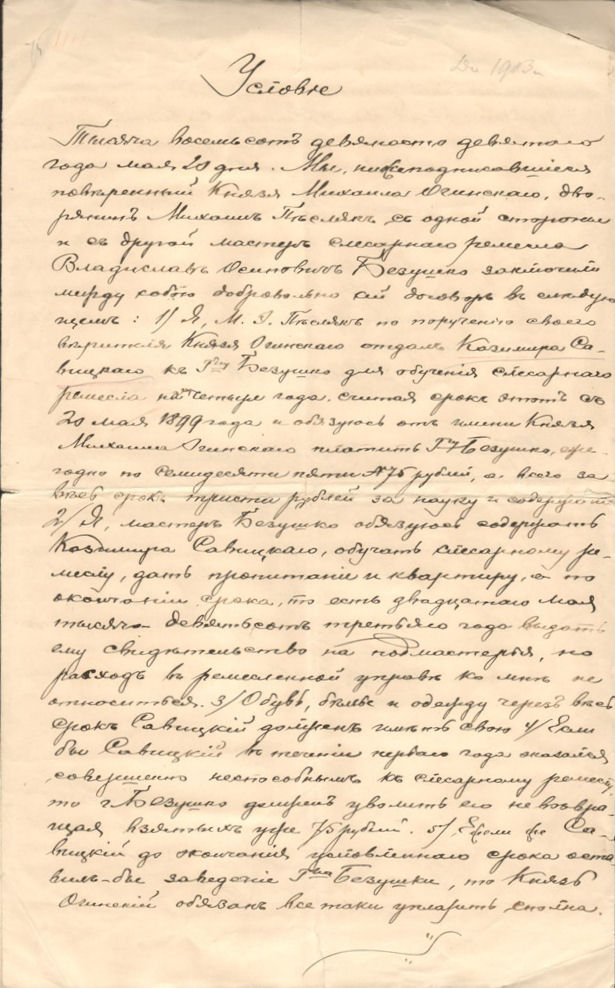 До 1903 г.
Условие
Тысяча восемьсотъ девяносто девятого
года мая 20 дня. Мы, нижеподписавшіеся
повѣренный Князя Михаила Огинскаго, дво-
рянинъ Михаилъ Пѣслякъ, съ одной стороны
и съ другой мастеръ слесарнаго ремесла
Владиславъ Осиповичъ Безушко заключили
между собою добровольно сей договоръ въ слѣдую
щемъ: 1/ Я, М. І. Пѣслякъ по порученію своего
вѣрителя Князя Огинскаго отдалъ Казимира Са-
вицкаго къ Г-ну Безушко для обученія слесарнаго
ремесла на четыре года, считая срокъ этотъ съ
20 мая 1899 года и обязуюсь отъ имени Князя
Михаила Огинскаго платить Г-ну Безушко, еже-
годно по семидесяти пяти 75 рублей, а всего за
весь срокъ триста рублей за науку и содержаніе
2/ Я, мастеръ Безушко обязуюсь содержать
Казимира Савицкаго, обучать слесарному ре-
меслу, дать пропитаніе и квартиру, а по
окончаніи срока, то есть двадцатаго мая
тысяча девятьсотъ третьяго года выдать
ему свидѣтельство на подмастерья, но
расходъ въ ремесленной управѣ ко мнѣ не
относиться. 3/ Обувь, бѣлье и одежду черезъ весь
срокъ Савицкій долженъ имѣть свою 4/ Если
бы Савицкій въ теченіи перваго года оказался
совершенно неспособнымъ къ слесарному ремеслу,
то г. Безушко долженъ уволить его не возвра-
щая взятыхъ уже 75 рублей. 5/ Если же Са-
вицкій до окончанія условленнаго срока оста
вилъ-бы заведеніе Г-на Безушки, то Князь
Огинскій обязанъ все таки уплатить сполна.